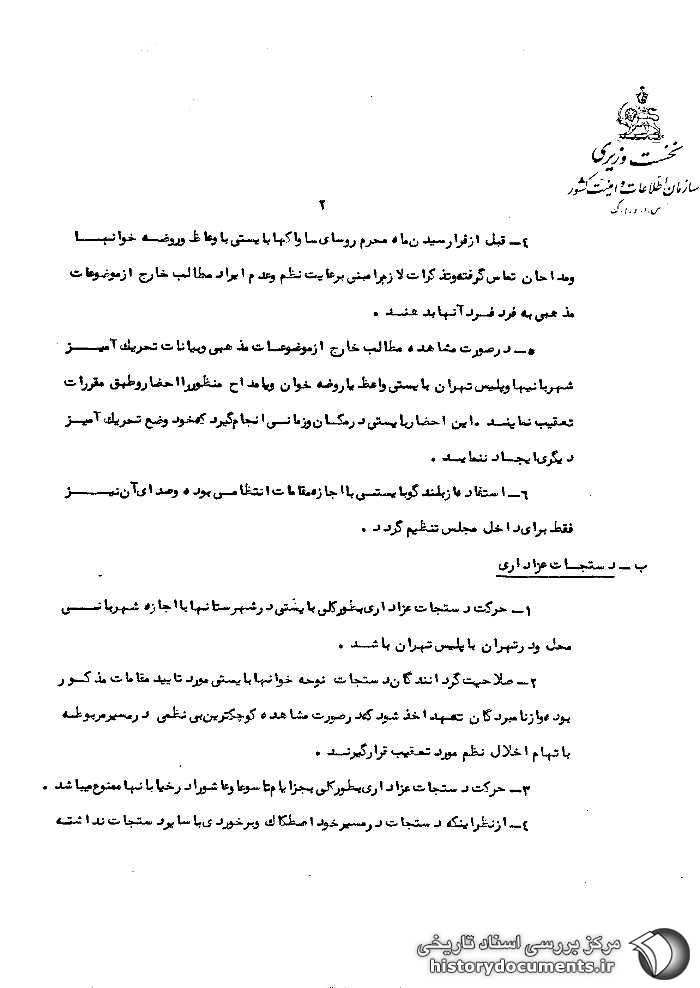 نخست وزیری
سازمان اطلاعات و امنیت کشور
س.ا.و.ا.ک
۲
٤- قبل از فرارسیدن ماه محرم روسای ساواکها بایستی با وعاظ و روضه خوانها
ومداحان تماس گرفته وتذکرات لازم مبنی برعایت نظم وعدم ایراد مطالب خارج از موضوعات
مذهبی به فرد فرد آنها بدهند .
٥- در صورت مشاهده مطالب خارج از موضوعات مذهبی وبیانات تحریک آمیز
شهربانیها وپلیس تهران بایستی واعظ یا روضه خوان ویا مداح منظور را احضار وطبق مقررات
تعقیب نمایند . این احضار بایستی در مکان وزمانی انجام گیرد که خود وضع تحریک آمیز
دیگری ایجاد ننماید .
٦- استفاده از بلندگو بایستی با اجازه مقامات انتظامی بوده وصدای آن نیز
فقط برای داخل مجلس تنظیم گردد .
ب - دستجات عزاداری
۱- حرکت دستجات عزاداری بطور کلی بایستی در شهرستانها با اجازه شهربانی
محل ودر تهران با پلیس تهران باشد .
۲- صلاحیت گردانندگان دستجات نوحه خوانها بایستی مورد تایید مقامات مذکور
بوده واز نامبردگان تعهد اخذ شود که در صورت مشاهده کوچکترین بی نظمی در مسیر مربوطه
با تهام اخلال نظم مورد تعقیب قرار گیرند .
۳- حرکت دستجات عزاداری بطور کلی بجز ایام تاسوعا وعاشورا در خیابانها ممنوع میباشد .
٤- از نظر اینکه دستجات در مسیر خود اصطکاک وبرخوردی با سایر دستجات نداشته
مرکز بررسی اسناد تاریخی
historydocuments.ir